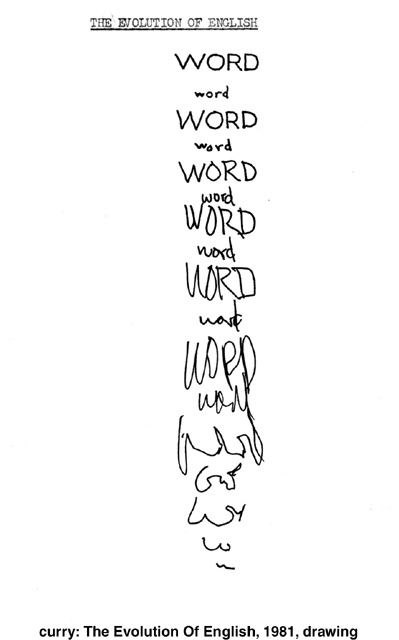 THE EVOLUTION OF ENGLISH
WORD
word
WORD
word
WORD
word
WORD
word
WORD
word
WORD
curry: The Evolution Of English, 1981, drawing